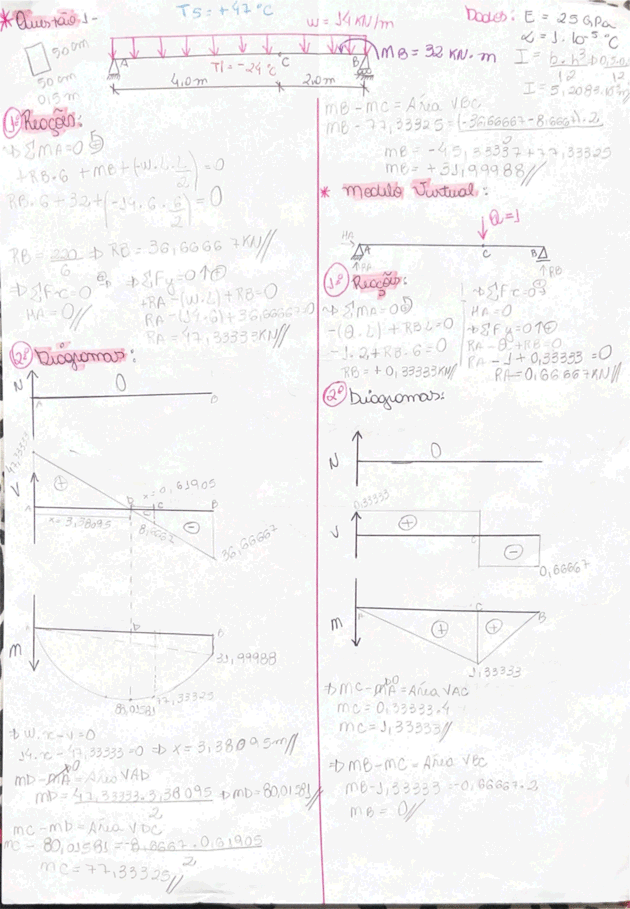 * Questão 1-
TS = +47 °C
w = 14 KN/m
Dados: E = 25 GPa
α = 1.10⁻⁵ °C
50cm
50cm
A
TI = -24 °C
C
B
MB = 32 KN.m
4,0m
2,0m
12
12
1º Reações:
⇒ ΣMA=0
+RB.6 + MB + (-W.L.L/2) = 0
RB.6 + 32 + (-14.6.6/2) = 0
RB = 220/6 ⇒ RB = 36,66667KN//
⇒ ΣFx=0
HA = 0//
⇒ ΣFy=0↑⊕
+RA-(W.L)+RB=0
RA-(14.6)+36,66667=0
RA = 47,33333KN//
2º Diagramas:
N
0
A
B
47,33333
V
+
x = 0,61905
A
D
C
B
x = 3,38095
8,66667
-
36,66667
M
A
D
B
31,99988
77,33325
80,01581
⇒ W.x-V=0
14.x-47,33333=0 ⇒ x = 3,38095m//
MD-MA=Área VAD
MD = 47,33333.3,38095/2 ⇒ MD=80,01581//
MC-MD=Área VDC
MC-80,01581=-8,6667.0,61905/2
MC = 77,33325//
MB-MC = Área VBC
MB-77,33325=(-36,66667-8,6667).2/2
MB = -45,33337+77,33325
MB = +31,99988//
* Modulo Virtual:
Q=1
HA
A
C
B
RA
RB
1º Reação:
⇒ ΣMA=0
-(Q.L)+RB.L=0
-1.2+RB.6=0
RB = +0,33333KN//
⇒ ΣFx=0
HA = 0
⇒ ΣFy=0↑⊕
RA-Q+RB=0
RA-1+0,33333=0
RA=0,66667KN//
2º Diagramas:
N
0
0,33333
V
+
C
-
0,66667
M
A
C
B
+
+
1,33333
⇒ MC-MA=Área VAC
MC = 0,33333.4
MC = 1,33333//
⇒ MB-MC = Área VBC
MB-1,33333=-0,66667.2
MB = 0//